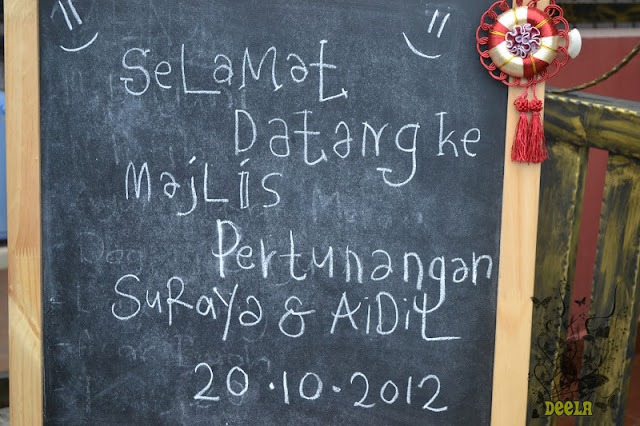 SeLaMat
Datang ke
MajLis
Pertunangan
SuRaya & AiDiL
20.10.2012
DEELA